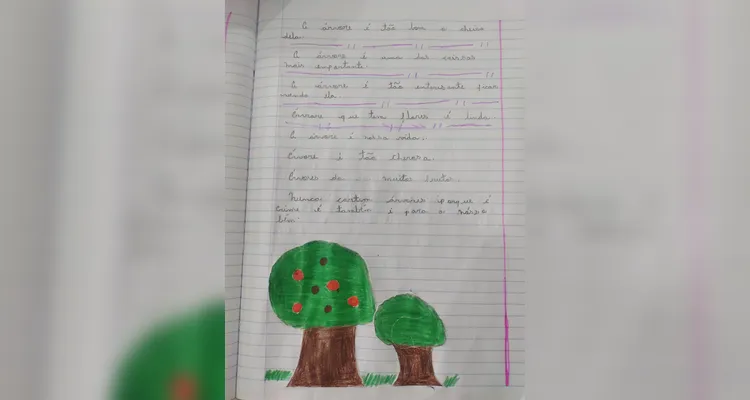 A árvore é tão bom o cheiro
dela.
A árvore é uma das coisas
mais importante.
A árvore é tão interesante ficar
vendo ela.
Árvore que tem flores é linda
A árvore é nossa vida.
Árvore é tão cheroza.
Árvores da muitos frutos.
Nunca cortem árvores porque é
árvore é também é para o nosso
bem.